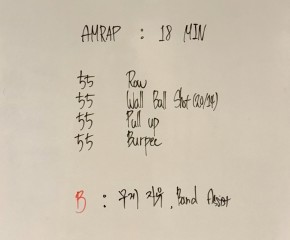 AMRAP : 18 MIN
55 Row
55 Wall Ball Shot (20/14)
55 Pull up
55 Burpee
B : 무게 자유, Band Assist